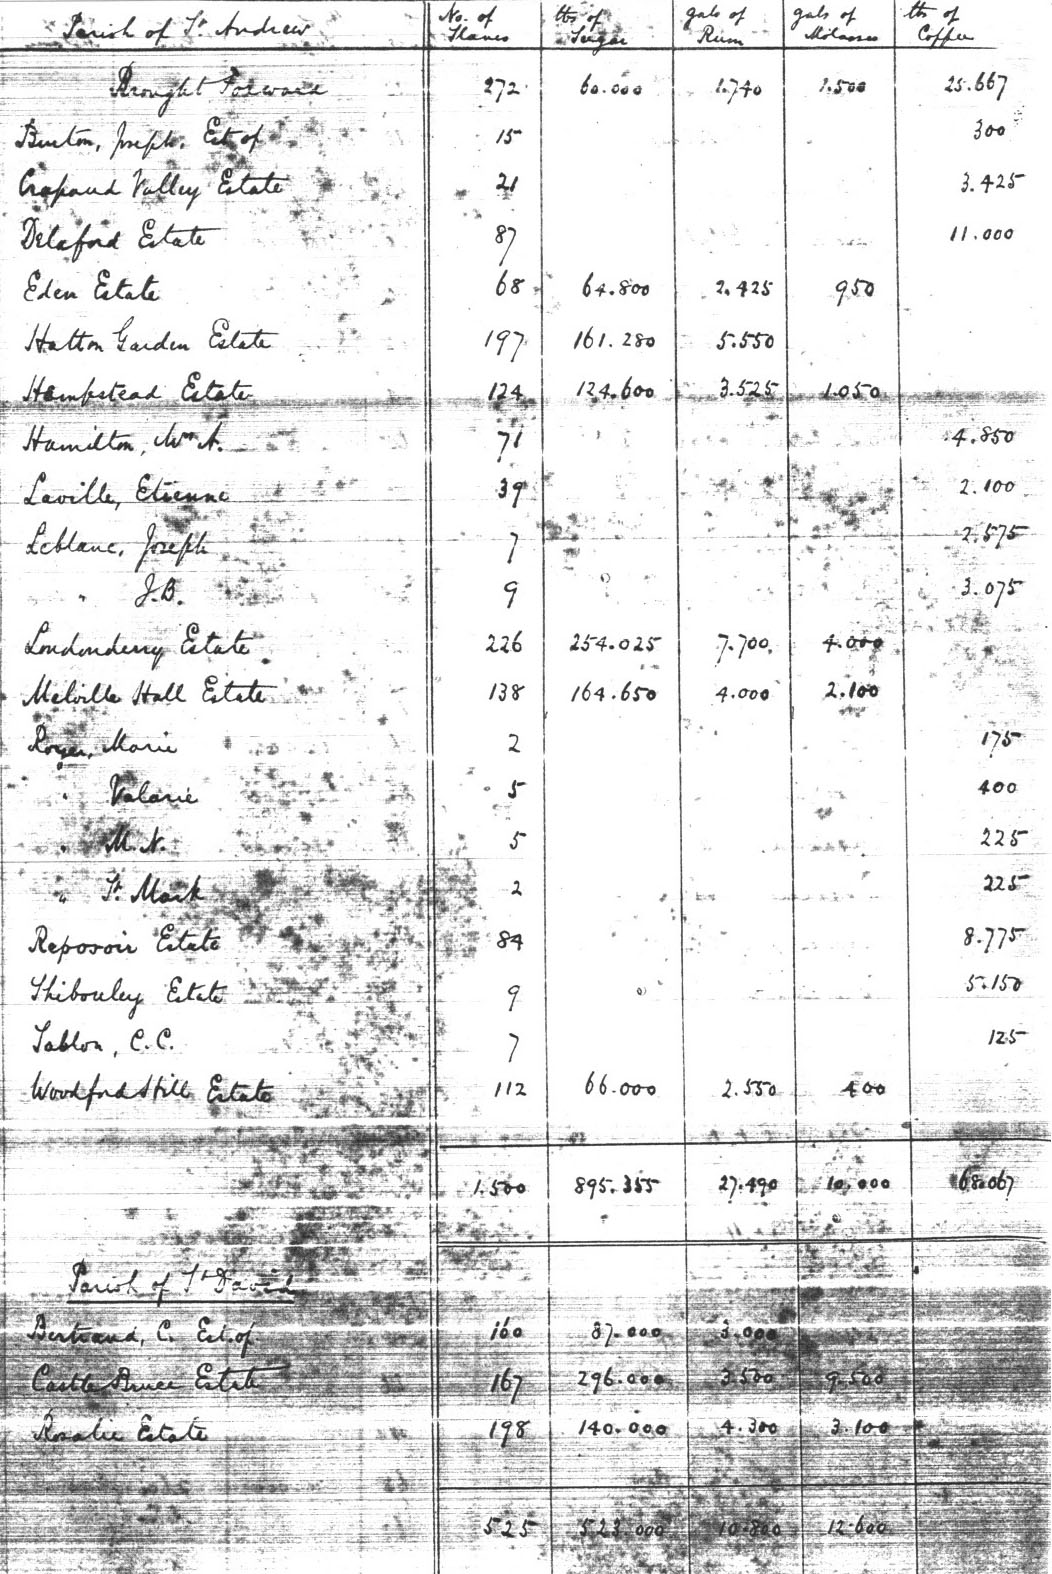 Parish of St Andrew No. of Slaves lbs of Sugar gals of Rum gals of Molasses lbs of Coffee
Brought Forward 272 60.000 1.740 1.500 25.667
Burton, Joseph. Est. of 15 300
Crapaud Valley Estate 21 3.425
Delaford Estate 87 11.000
Eden Estate 68 64.800 2.425 950
Hatton Garden Estate 197 161.280 5.550
Hampstead Estate 124 124.600 3.525 1.050
Hamilton, Wm A. 71 4.850
Laville, Etienne 39 2.100
Leblanc, Joseph 7 2.575
" J.B. 9 3.075
Londonderry Estate 226 254.025 7.700 4.000
Melville Hall Estate 138 164.650 4.000 2.100
Royer, Marie 2 175
" Valarie 5 400
" M.N. 5 225
" St. Mark 2 225
Reposoir Estate 84 8.775
Thibouley Estate 9 5.150
Tablon, C.C. 7 125
Woodford Hill Estate 112 66.000 2.550 400
1.500 895.355 27.490 10.000 68.067
Parish of St David
Bertrand, C. Est. of 160 87.000 3.000
Castle Bruce Estate 167 296.000 3.500 9.500
Rosalie Estate 198 140.000 4.300 3.100
525 523.000 10.800 12.600